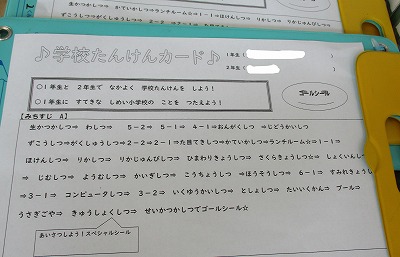 生かつかしつ⇒
かていかしつ⇒ランチルーム⇒1－1⇒ほけんしつ⇒ りかしつ⇒ りかじゅんびしつ⇒
ずこうしつ⇒がくしゅうしつ⇒ 2－2⇒
♪学校たんけんカード♪
1年生（ ）
2年生（ ）
○1年生と 2年生で なかよく 学校たんけんを しよう！
○1年生に すてきな しめい小学校の ことを つたえよう！
ゴールシール
【みちすじ A】
生かつかしつ⇒ わしつ⇒ 5－2⇒ 5－1⇒ 4－1⇒おんがくしつ ⇒じどうかいしつ
ずこうしつ⇒がくしゅうしつ⇒2－2⇒2－1⇒た目てきしつ⇒かていかしつ⇒ランチルーム☆⇒1－1⇒
ほけんしつ⇒ りかしつ⇒ りかじゅんびしつ⇒ ひまわりきょうしつ⇒ さくらきょうしつ☆⇒ しょくいんしつ
⇒ じむしつ⇒ ようむしつ⇒ かいぎしつ⇒ こうちょうしつ ⇒ほうそうしつ⇒ 6－1⇒ すみれきょうし
⇒3－1⇒ コンピュータしつ⇒ 3－2⇒ いくゆうかいしつ⇒ としょしつ⇒ たいいくかん⇒ プール⇒
うさぎごや⇒ きゅうしょくしつ⇒ せいかつかしつでゴールシール☆
あいさつしよう！スペシャルシール